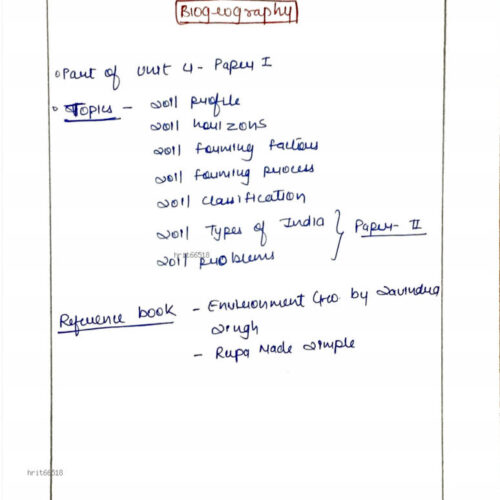 Biogeography
Part of Unit 4 - Paper I
Topics - Soil profile
Soil horizons
Soil forming factors
Soil forming process
Soil classification
Soil Types of India } Paper - II
hrit66518
Soil problems
Reference book - Environment Geo by Savindra
Singh
- Rupa Made Simple
hrit66518